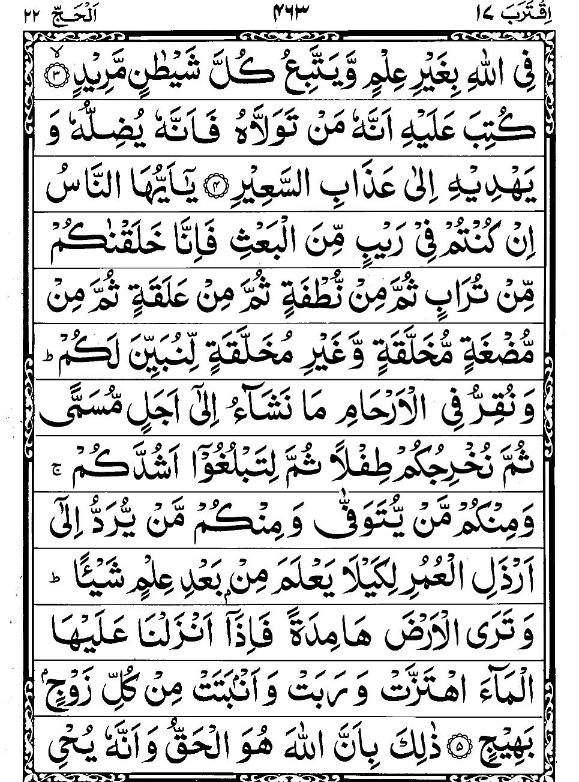 اِقْتَرَبَ ١٧ ٤٦٣ اَلْحَجّ ٢٢
فِی اللّٰهِ بِغَیْرِ عِلْمٍ وَّیَتَّبِعُ كُلَّ شَیْطٰنٍ مَّرِیْدٍ ۙ﴿۳﴾
كُتِبَ عَلَیْهِ اَنَّهٗ مَنْ تَوَلَّاهُ فَاَنَّهٗ یُضِلُّهٗ وَ
یَهْدِیْهِ اِلٰی عَذَابِ السَّعِیْرِ ﴿۴﴾ یٰۤاَیُّهَا النَّاسُ
اِنْ كُنْتُمْ فِیْ رَیْبٍ مِّنَ الْبَعْثِ فَاِنَّا خَلَقْنٰكُمْ
مِّنْ تُرَابٍ ثُمَّ مِنْ نُّطْفَةٍ ثُمَّ مِنْ عَلَقَةٍ ثُمَّ مِنْ
مُّضْغَةٍ مُّخَلَّقَةٍ وَّغَیْرِ مُخَلَّقَةٍ لِّنُبَیِّنَ لَكُمْ ؕ
وَ نُقِرُّ فِی الْاَرْحَامِ مَا نَشَآءُ اِلٰۤی اَجَلٍ مُّسَمًّی
ثُمَّ نُخْرِجُكُمْ طِفْلًا ثُمَّ لِتَبْلُغُوْۤا اَشُدَّكُمْ ۚ
وَمِنْكُمْ مَّنْ یُّتَوَفّٰی وَمِنْكُمْ مَّنْ یُّرَدُّ اِلٰۤی
اَرْذَلِ الْعُمُرِ لِكَیْلَا یَعْلَمَ مِنْۢ بَعْدِ عِلْمٍ شَیْـًٔا ؕ
وَتَرَی الْاَرْضَ هَامِدَةً فَاِذَاۤ اَنْزَلْنَا عَلَیْهَا
الْمَآءَ اهْتَزَّتْ وَ رَبَتْ وَاَنْۢبَتَتْ مِنْ كُلِّ زَوْجٍۭ
بَهِیْجٍ ﴿۵﴾ ذٰلِكَ بِاَنَّ اللّٰهَ هُوَ الْحَقُّ وَاَنَّهٗ یُحْیِ